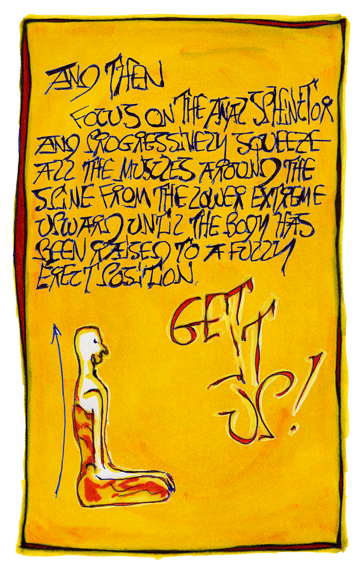 AND THEN
FOCUS ON THE ANAL SPHINCTOR
AND PROGRESSIVELY SQUEEZE
ALL THE MUSCLES AROUND THE
SPINE FROM THE LOWER EXTREME
UPWARD UNTIL THE BODY HAS
BEEN RAISED TO A FULLY
ERECT POSITION.
GET
IT
UP!